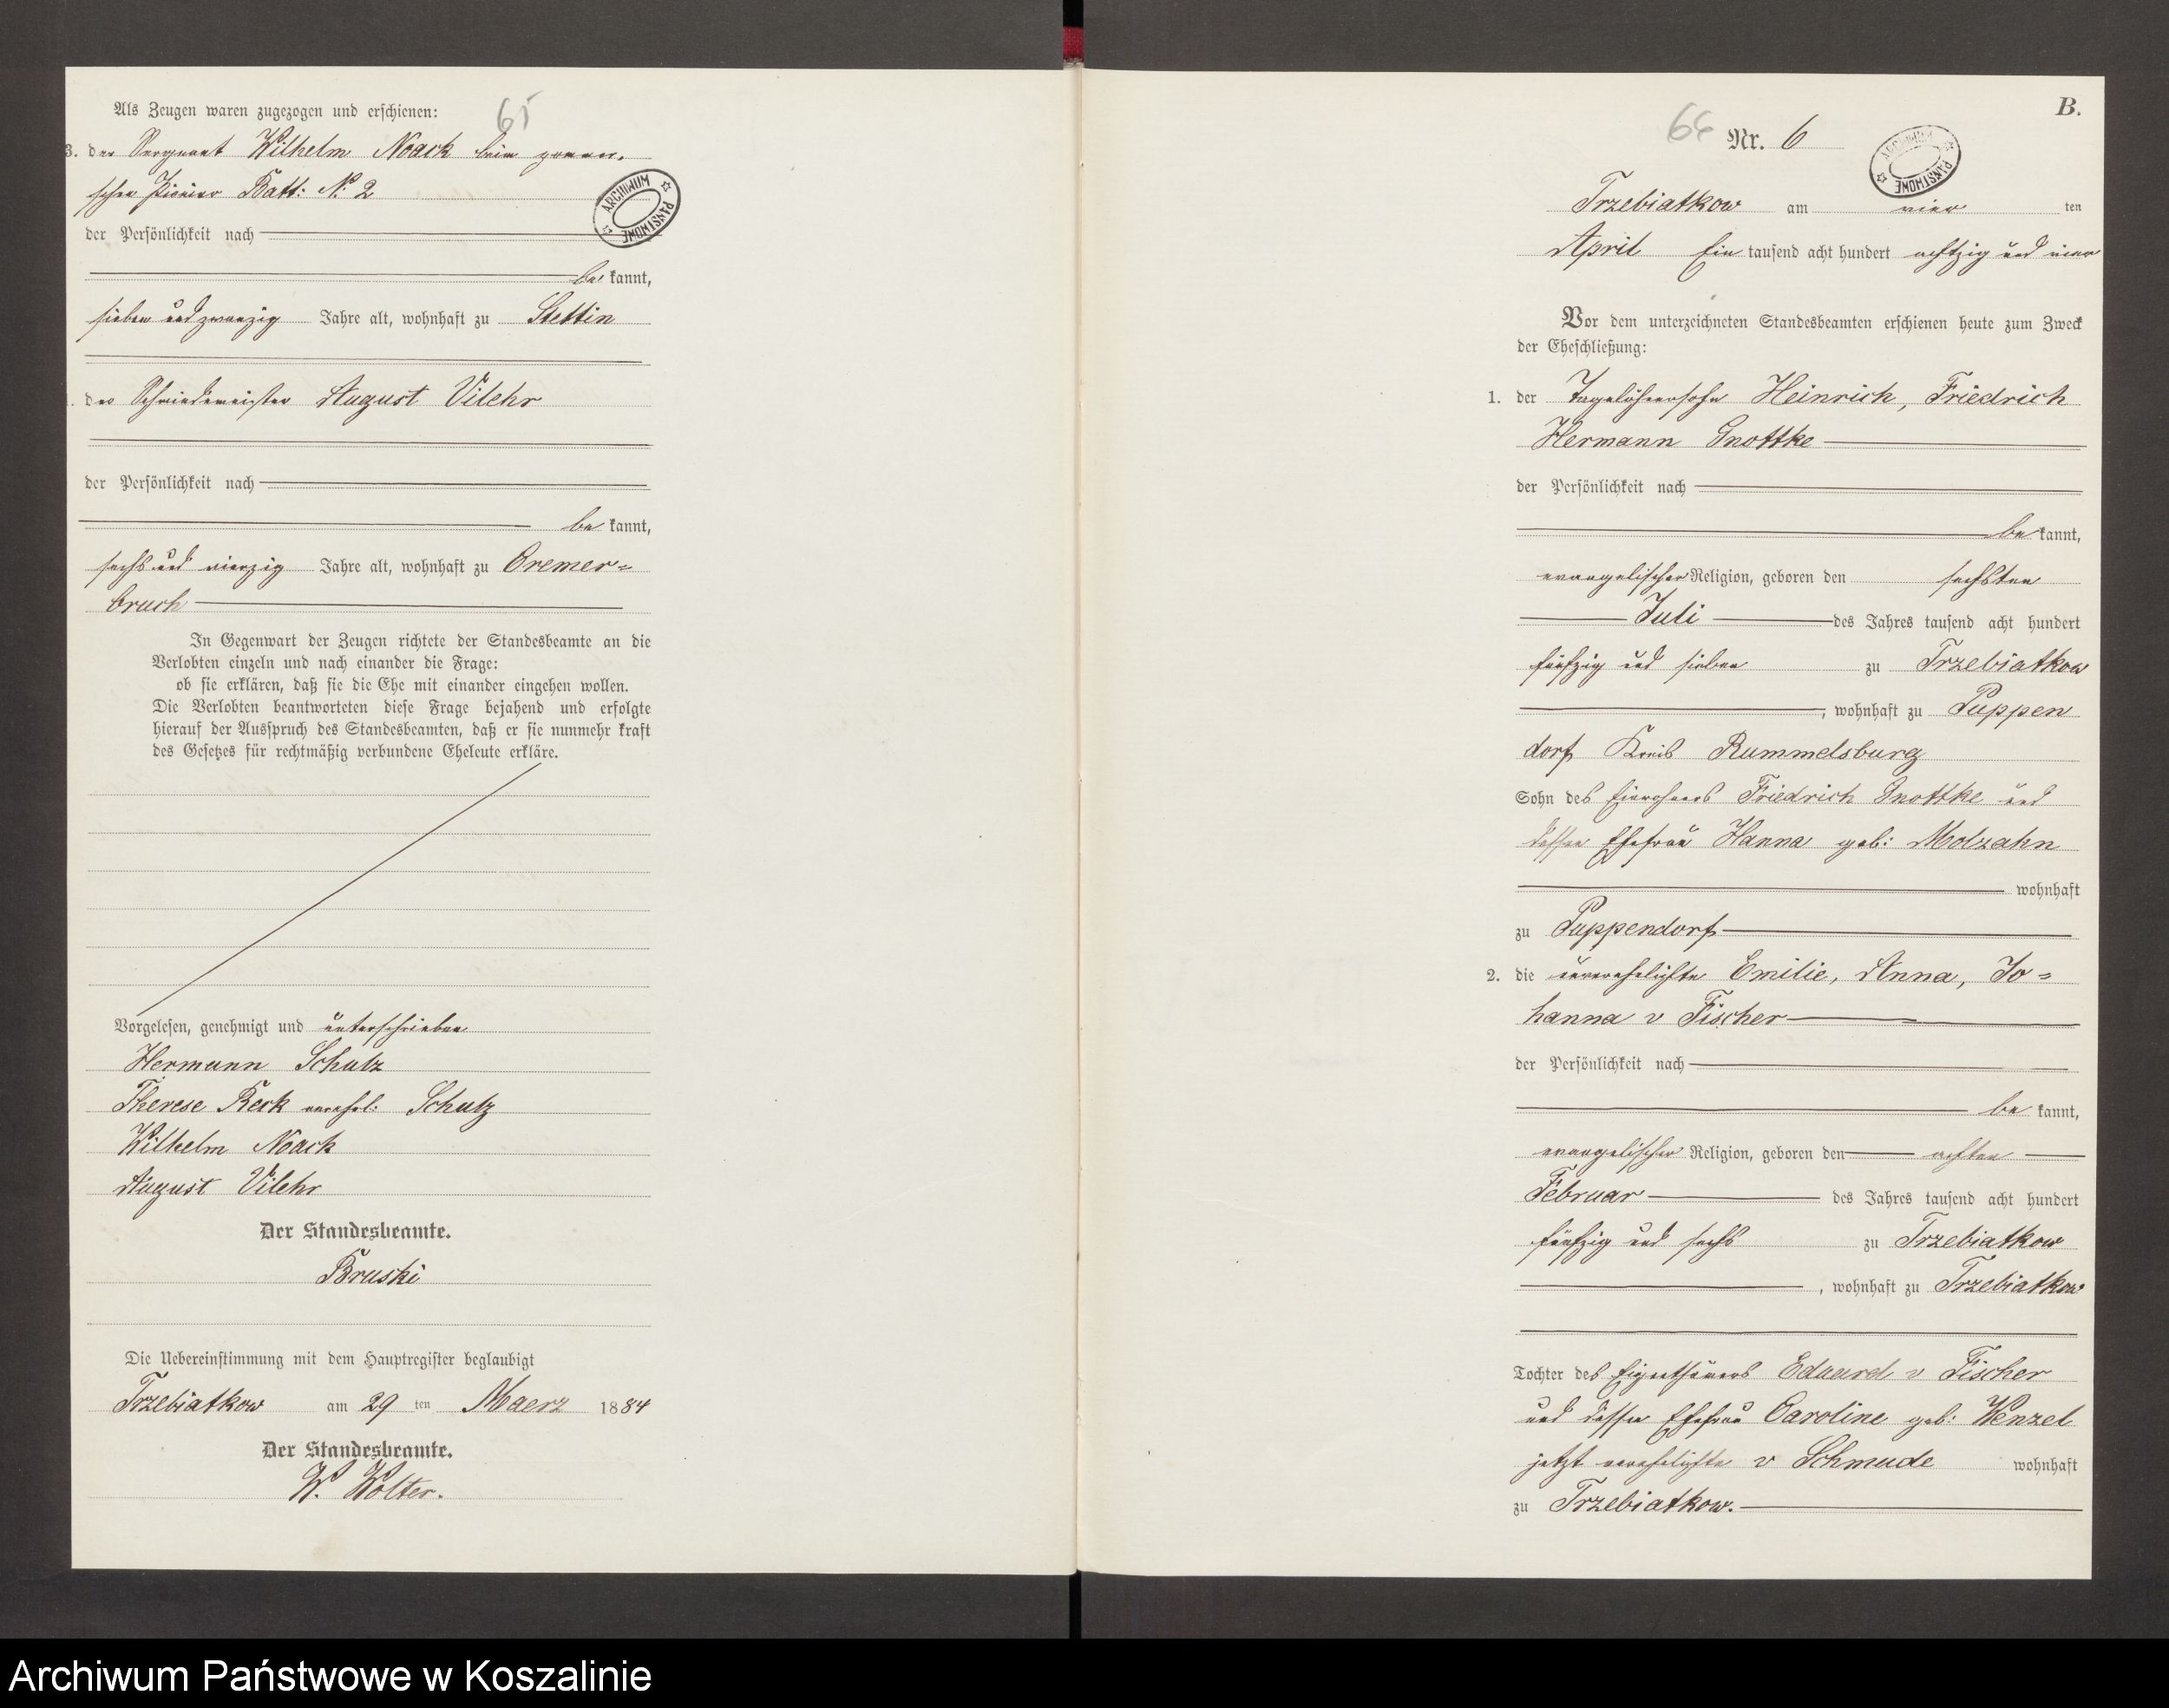 Als Zeugen waren zugezogen und erschienen:
65
3. der Sergeant Wilhelm Noack beim pommer-
schen Pionier Batt: No 2
der Persönlichkeit nach
be kannt,
sieben und zwanzig Jahre alt, wohnhaft zu Stettin
der Schmiedemeister August Vilehr
der Persönlichkeit nach
be kannt,
sechs und vierzig Jahre alt, wohnhaft zu Cremer=
bruch
In Gegenwart der Zeugen richtete der Standesbeamte an die
Verlobten einzeln und nach einander die Frage:
ob sie erklären, daß sie die Ehe mit einander eingehen wollen.
Die Verlobten beantworteten diese Frage bejahend und erfolgte
hierauf der Ausspruch des Standesbeamten, daß er sie nunmehr kraft
des Gesetzes für rechtmäßig verbundene Eheleute erkläre.
Vorgelesen, genehmigt und unterschrieben
Hermann Schulz
Therese Reck verehel: Schulz
Wilhelm Noack
August Vilehr
Der Standesbeamte.
Bruski
Die Uebereinstimmung mit dem Hauptregister beglaubigt
Trzebiatkow am 29 ten Maerz 1884
Der Standesbeamte.
W. Wolter.
ARCHIWUM PAŃSTWOWE
B.
66 Nr. 6
ARCHIWUM PAŃSTWOWE
Trzebiatkow am vier ten
April Ein tausend acht hundert achtzig und vier
Vor dem unterzeichneten Standesbeamten erschienen heute zum Zweck
der Eheschließung:
1. der Tagelöhnersohn Heinrich, Friedrich
Hermann Gnottke
der Persönlichkeit nach
be kannt,
evangelischer Religion, geboren den sechsten
Juli des Jahres tausend acht hundert
fünfzig und sieben zu Trzebiatkow
, wohnhaft zu Puppen
dorf Kreis Rummelsburg
Sohn des Einwohners Friedrich Gnottke und
dessen Ehefrau Hanna geb: Molzahn
wohnhaft
zu Puppendorf
2. die unverehelichte Emilie, Anna, Jo=
hanna v Fischer
der Persönlichkeit nach
be kannt,
evangelischer Religion, geboren den achten
Februar des Jahres tausend acht hundert
fünfzig und sechs zu Trzebiatkow
, wohnhaft zu Trzebiatkow
Tochter des Eigenthümers Eduard v Fischer
und dessen Ehefrau Caroline geb: Wenzel
jetzt verehelichte v Schmude wohnhaft
zu Trzebiatkow.
Archiwum Państwowe w Koszalinie